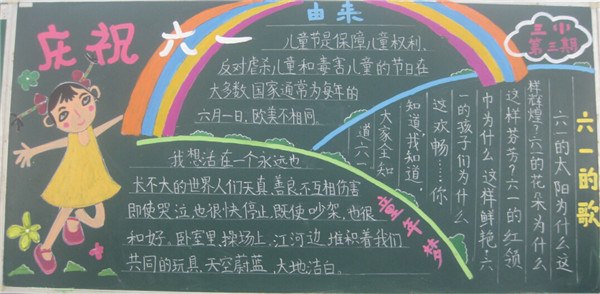 庆祝六一
由来
儿童节是保障儿童权利、
反对虐杀儿童和毒害儿童的节日在
大多数国家通常为每年的
六月一日,欧美不相同。
我想活在一个永远也
长不大的世界人们天真善良不互相伤害
即使哭泣,也很快停止,既使吵架,也很
和好。卧室里,操场上,江河边,堆积着我们
共同的玩具,天空蔚蓝,大地洁白。
童年梦
三小
第三期
六一的歌
六一的太阳为什么这
样辉煌?六一的花朵为什么
这样芬芳?六一的红领
巾为什么这样鲜艳?六
一的孩子们为什么
这欢畅……你
知道,我知道,
大家全知
道六一